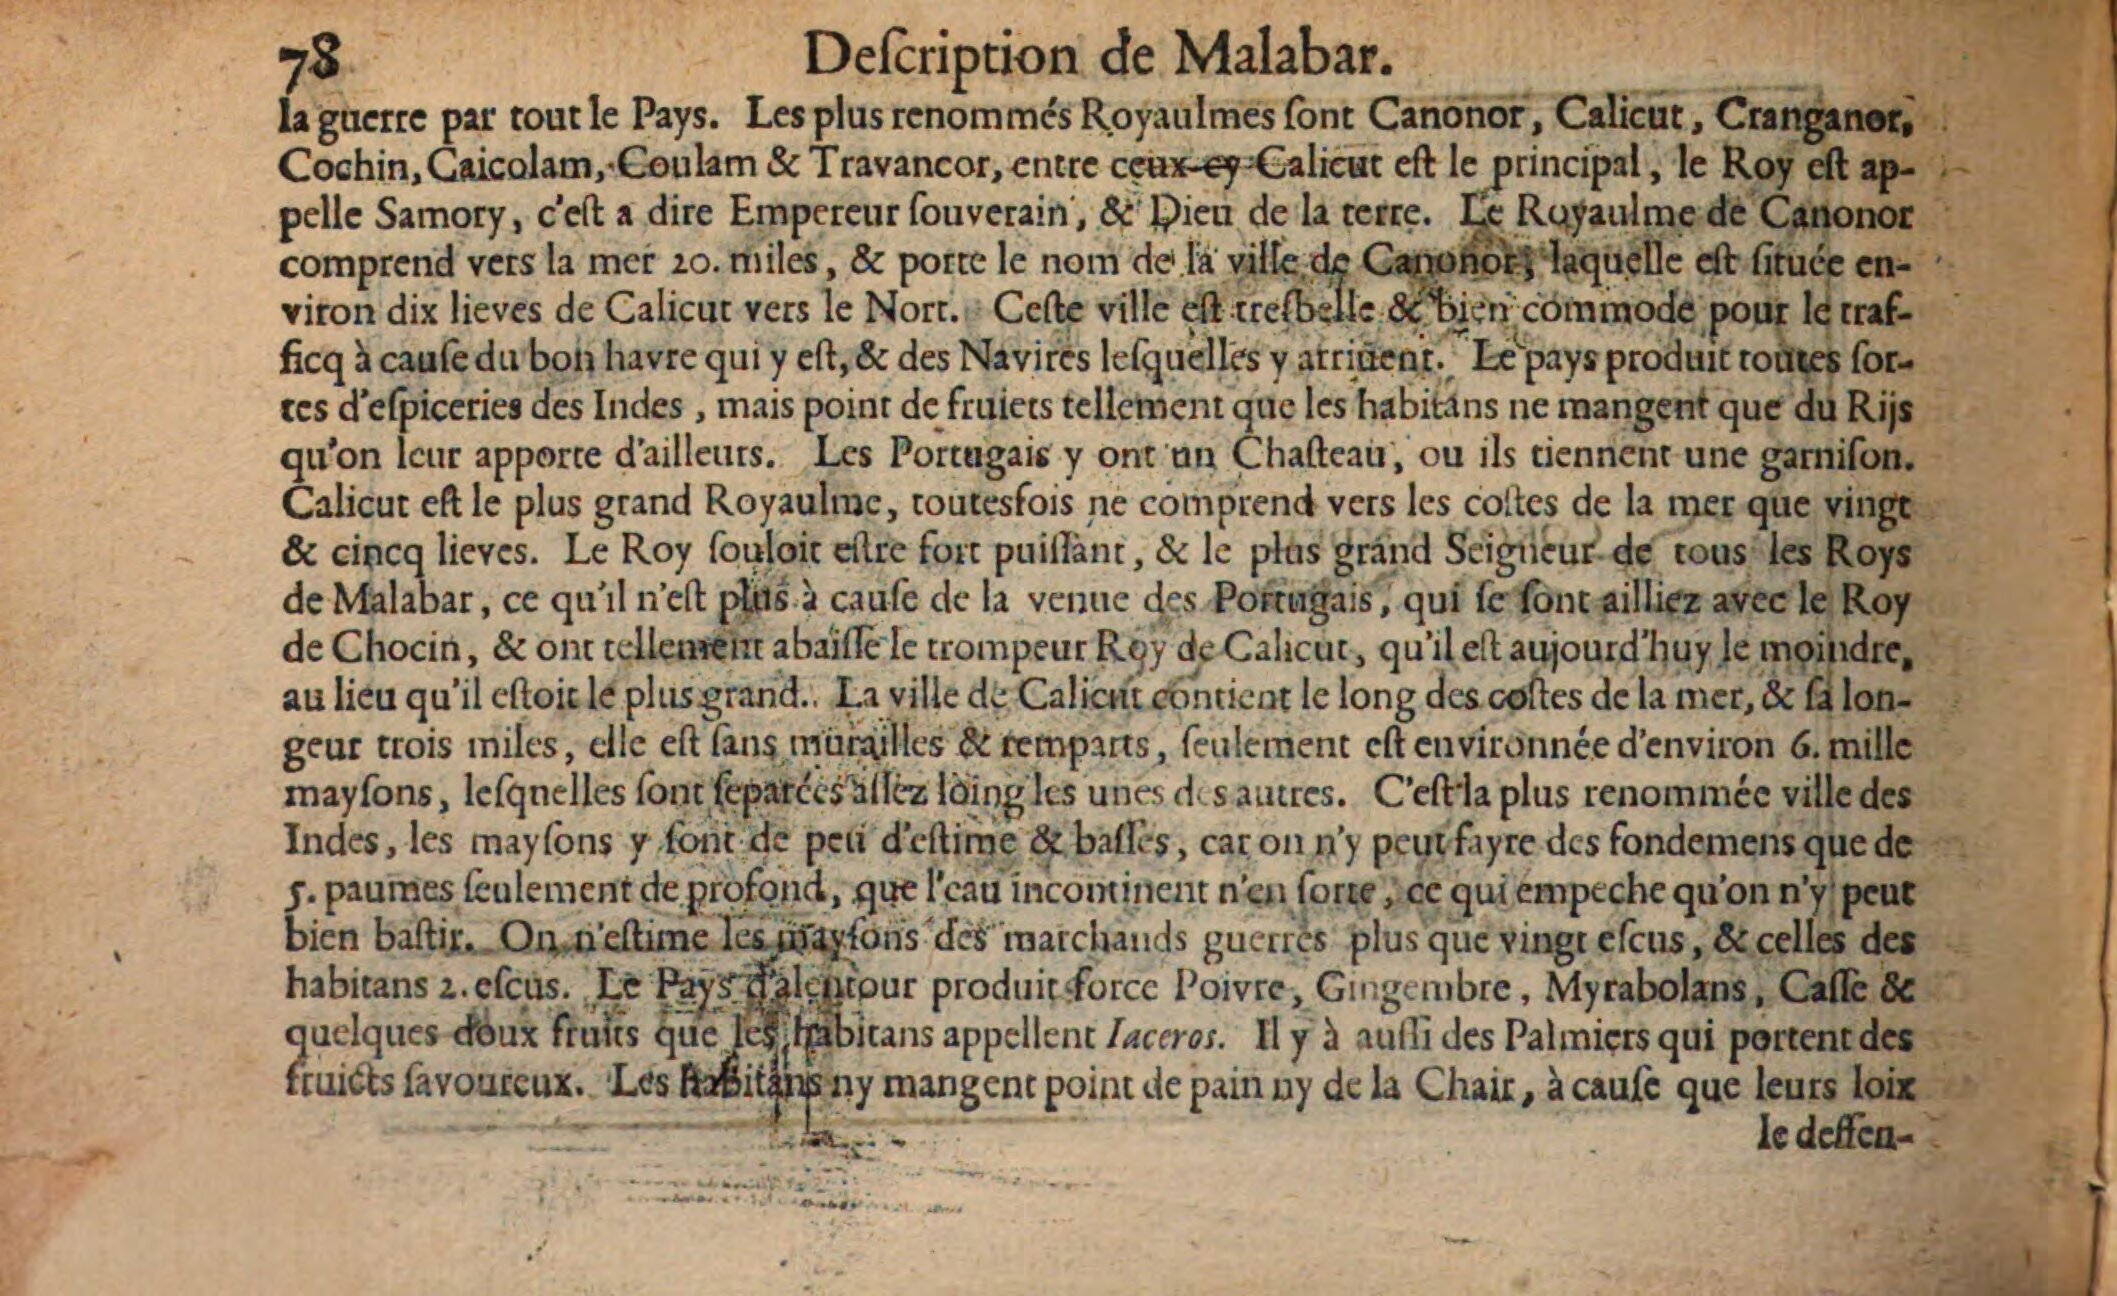 78 Deſcription de Malabar.
la guerre par tout le Pays. Les plus renommés Royaulmes ſont Canonor, Calicut, Cranganor,
Cochin, Caicolam, Coulam & Travancor, entre ceux-cy Calicut eſt le principal, le Roy eſt ap-
pelle Samory, c'eſt a dire Empereur ſouverain, & Dieu de la terre. Le Royaulme de Canonor
comprend vers la mer 20. miles, & porte le nom de la ville de Canonor, laquelle eſt ſituée en-
viron dix lieves de Calicut vers le Nort. Ceſte ville eſt treſbelle & bien commode pour le traf-
ficq à cauſe du bon havre qui y eſt, & des Navires leſquelles y arriuent. Le pays produit toutes ſor-
tes d'eſpiceries des Indes, mais point de fruicts tellement que les habitans ne mangent que du Rijs
qu'on leur apporte d'ailleurs. Les Portugais y ont un Chaſteau, ou ils tiennent une garniſon.
Calicut eſt le plus grand Royaulme, toutesfois ne comprend vers les coſtes de la mer que vingt
& cincq lieves. Le Roy ſouloit eſtre fort puiſſant, & le plus grand Seigneur de tous les Roys
de Malabar, ce qu'il n'eſt plus à cauſe de la venue des Portugais, qui ſe ſont ailliez avec le Roy
de Chocin, & ont tellement abaiſſe le trompeur Roy de Calicut, qu'il eſt aujourd'huy le moindre,
au lieu qu'il eſtoit le plus grand. La ville de Calicut contient le long des coſtes de la mer, & ſa lon-
geur trois miles, elle eſt ſans murailles & remparts, ſeulement eſt environnée d'environ 6. mille
mayſons, leſqnelles ſont ſeparées aſſez loing les unes des autres. C'eſt la plus renommée ville des
Indes, les mayſons y ſont de peu d'eſtime & baſſes, car on n'y peut fayre des fondemens que de
5. paumes ſeulement de profond, que l'eau incontinent n'en ſorte, ce qui empeche qu'on n'y peut
bien baſtir. On n'eſtime les mayſons des marchands guerres plus que vingt eſcus, & celles des
habitans 2. eſcus. Le Pays d'alentour produit force Poivre, Gingembre, Myrabolans, Caſſe &
quelques doux fruits que les habitans appellent Iaceros. Il y à auſſi des Palmiers qui portent des
fruicts ſavoureux. Les habitans ny mangent point de pain ny de la Chair, à cauſe que leurs loix
le deffen-